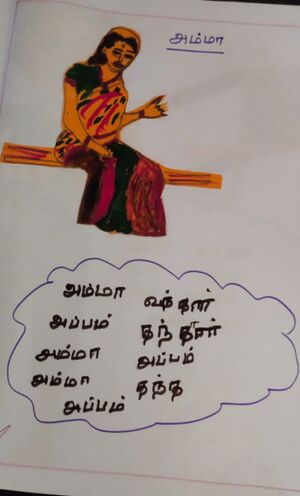 அம்மா
அம்மா வந்தாள்
அப்பம் தந்தாள்
அம்மா அப்பம்
அம்மா தந்த
அப்பம்